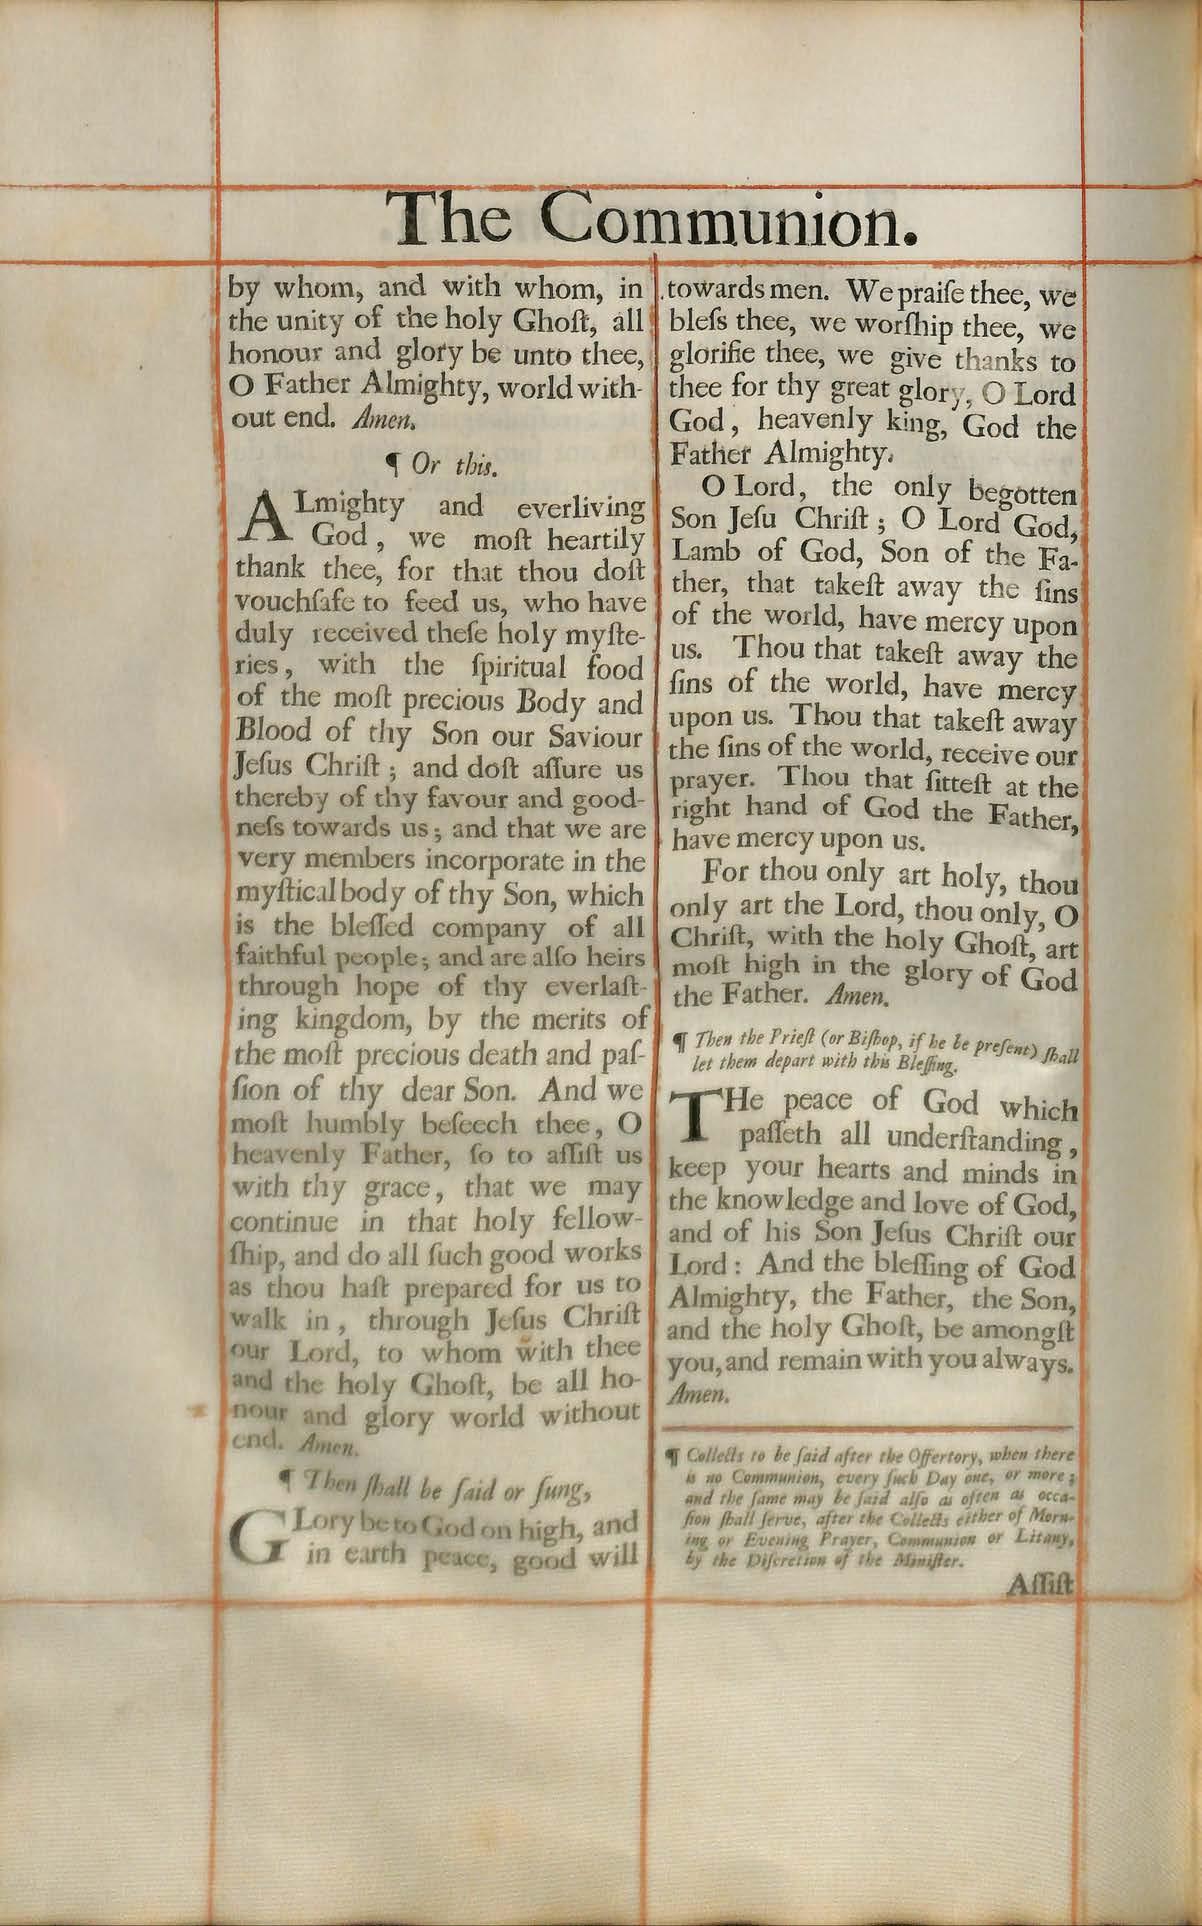 The Communion.
by whom, and with whom, in
the unity of the holy Ghoſt, all
honour and glory be unto thee,
O Father Almighty, world with-
out end. Amen.
¶ Or this.
ALmighty and everliving
God, we moſt heartily
thank thee, for that thou doſt
vouchſafe to feed us, who have
duly received theſe holy myſte-
ries, with the ſpiritual food
of the moſt precious Body and
Blood of thy Son our Saviour
Jeſus Chriſt; and doſt aſſure us
thereby of thy favour and good-
neſs towards us; and that we are
very members incorporate in the
myſtical body of thy Son, which
is the bleſſed company of all
faithful people; and are alſo heirs
through hope of thy everlaſt-
ing kingdom, by the merits of
the moſt precious death and paſ-
ſion of thy dear Son. And we
moſt humbly beſeech thee, O
heavenly Father, ſo to aſſiſt us
with thy grace, that we may
continue in that holy fellow-
ſhip, and do all ſuch good works
as thou haſt prepared for us to
walk in, through Jeſus Chriſt
our Lord, to whom with thee
and the holy Ghoſt, be all ho-
nour and glory world without
end. Amen.
¶ Then ſhall be ſaid or ſung,
GLory be to God on high, and
in earth peace, good will
towards men. We praiſe thee, we
bleſs thee, we worſhip thee, we
glorifie thee, we give thanks to
thee for thy great glory, O Lord
God, heavenly king, God the
Father Almighty.
O Lord, the only begotten
Son Jeſu Chriſt; O Lord God,
Lamb of God, Son of the Fa-
ther, that takeſt away the ſins
of the world, have mercy upon
us. Thou that takeſt away the
ſins of the world, have mercy
upon us. Thou that takeſt away
the ſins of the world, receive our
prayer. Thou that ſitteſt at the
right hand of God the Father,
have mercy upon us.
For thou only art holy, thou
only art the Lord, thou only, O
Chriſt, with the holy Ghoſt, art
moſt high in the glory of God
the Father. Amen.
¶ Then the Prieſt (or Biſhop, if he be preſent) ſhall
let them depart with this Bleſſing.
THe peace of God which
paſſeth all underſtanding,
keep your hearts and minds in
the knowledge and love of God,
and of his Son Jeſus Chriſt our
Lord: And the bleſſing of God
Almighty, the Father, the Son,
and the holy Ghoſt, be amongſt
you, and remain with you always.
Amen.
¶ Collects to be ſaid after the Offertory, when there
is no Communion, every ſuch Day one, or more;
and the ſame may be ſaid alſo as often as occa-
ſion ſhall ſerve, after the Collects either of Morn-
ing or Evening Prayer, Communion or Litany,
by the Diſcretion of the Miniſter.
Aſſiſt